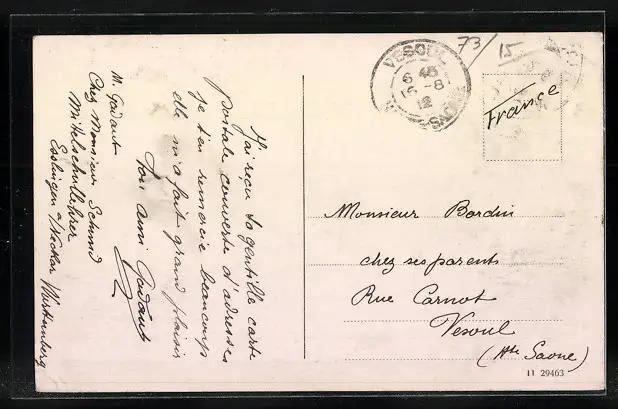 J'ai reçu ta gentille carte
postale couverte d'adresses
je t'en remercie beaucoup
elle m'a fait grand plaisir
Ton ami Godaut
M. Godaut
Chez Monsieur Schmid
Mittelschullehrer
Esslingen a/Neckar / Württemberg
VESOUL
6 45
16 - 8
12
SAONE
73/15
France
Monsieur Bardin
chez ses parents
Rue Carnot
Vesoul
(Hte Saone)
11 29463